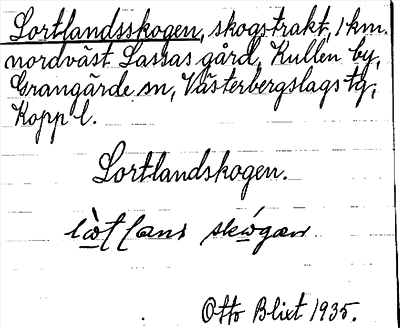 Lortlandsskogen, skogstrakt, 1 km.
nordväst Lassas gård, Kullen by,
Grangärde sn, Västerbergslags tg,
Kopp l.
Lortlandskogen.
Otto Blixt 1935.